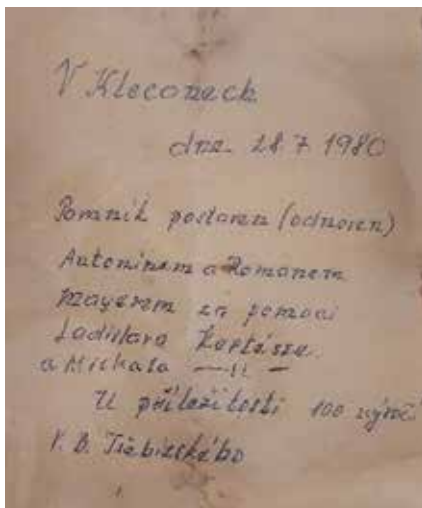 V Klecanech
dne 28 7 1980
Pomník postaven (odnosen)
Antonínem a Romanem
Mayerem za pomoci
Ladislava
a Michala —11—
U příležitosti 100 výročí
V. B. Třebízského